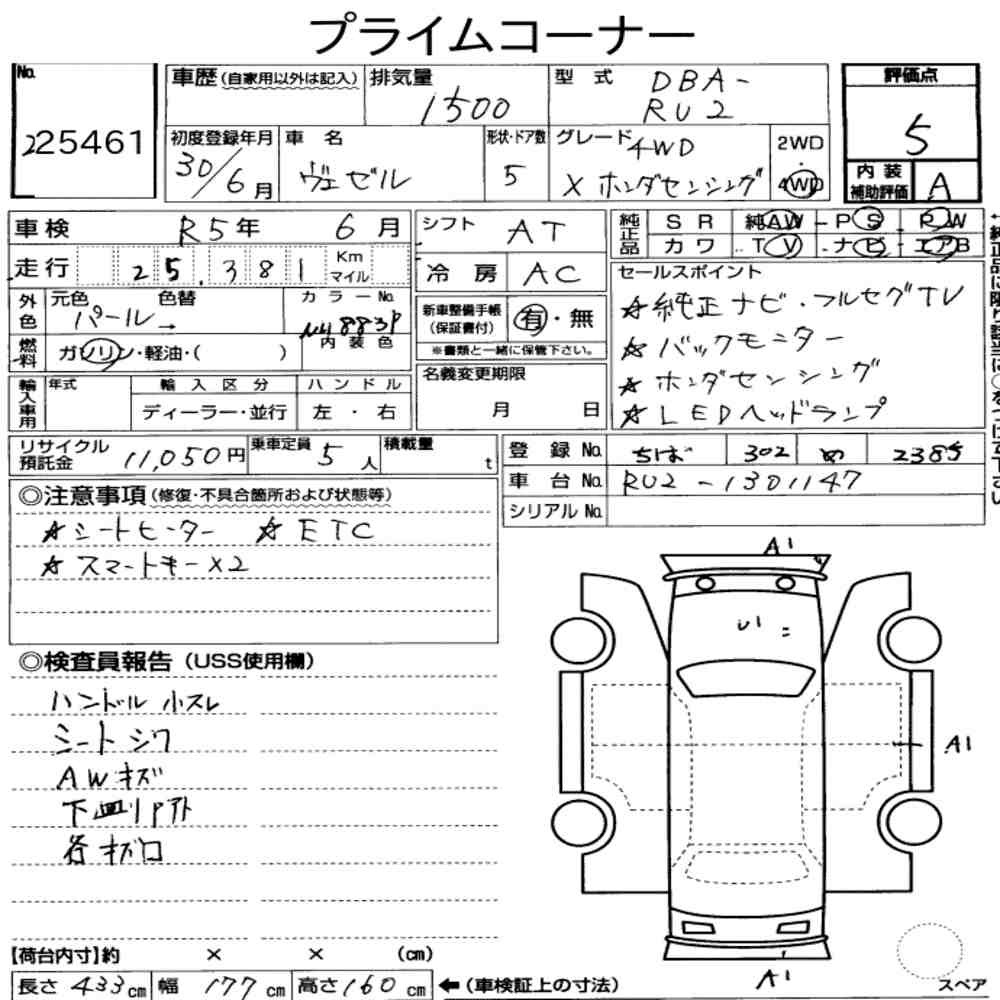 プライムコーナー
No.
225461
車歴 (自家用以外は記入)
排気量
1500
型 式
DBA-
RU2
評価点
5
初度登録年月
30/6月
車 名
ヴェゼル
形状・ドア数
5
グレード
4WD
X ホンダセンシング
2WD
・
4WD
内装
補助評価
A
車検
R5年 6月
走行
25,381
Km
マイル
シフト
AT
冷 房
AC
純正品
S R 純AW - P S - P W
カ ワ T V - ナビ - エアB
外色
元色 色替
パール→
カラーNo.
NH883P
内装色
燃料
ガソリン・軽油・( )
新車整備手帳
(保証書付)
有・無
※書類と一緒に保管下さい。
セールスポイント
☆純正ナビ・フルセグTV
☆バックモニター
☆ホンダセンシング
☆LEDヘッドランプ
輸入車用
年式
輸入区分
ディーラー・並行
ハンドル
左 ・ 右
名義変更期限
月 日
リサイクル
預託金
11,050円
乗車定員
5人
積載量
t
登 録 No.
ちば 302 め 2385
車 台 No.
RU2-1301147
シリアル No.
◎注意事項 (修復・不具合箇所および状態等)
☆シートヒーター ☆ETC
☆スマートキーX2
◎検査員報告 (USS使用欄)
ハンドル小スレ
シートシワ
AWキズ
下皿リアト
各キズロ
A1
U1
A1
A1
スペア
【荷台内寸】約 × × (cm)
長さ 433cm 幅 177cm 高さ160cm ←(車検証上の寸法)